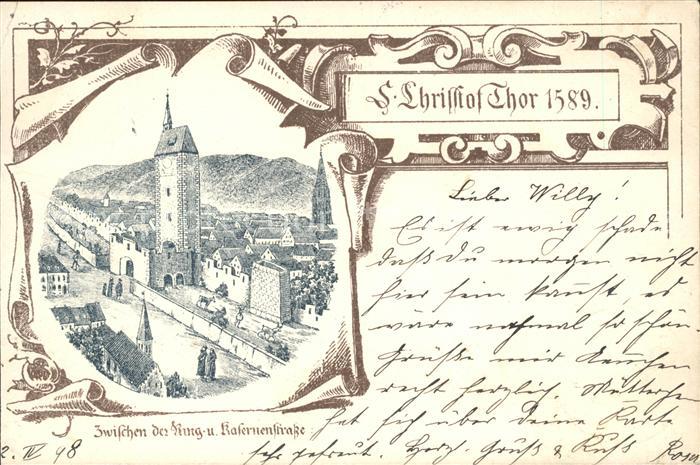 S. Christof Thor 1589.
Lieber Willy!
Es ist ewig schade
daß du morgen nicht
hier sein kannst, es
wäre nochmal so schön
Grüße mir
recht herzlich. Mutterchen
hat sich über deine Karte
sehr gefreut. Herzl. Gruß & Kuß Rosa
Zwischen der Ring- u. Kasernenstraße
2. IV 98